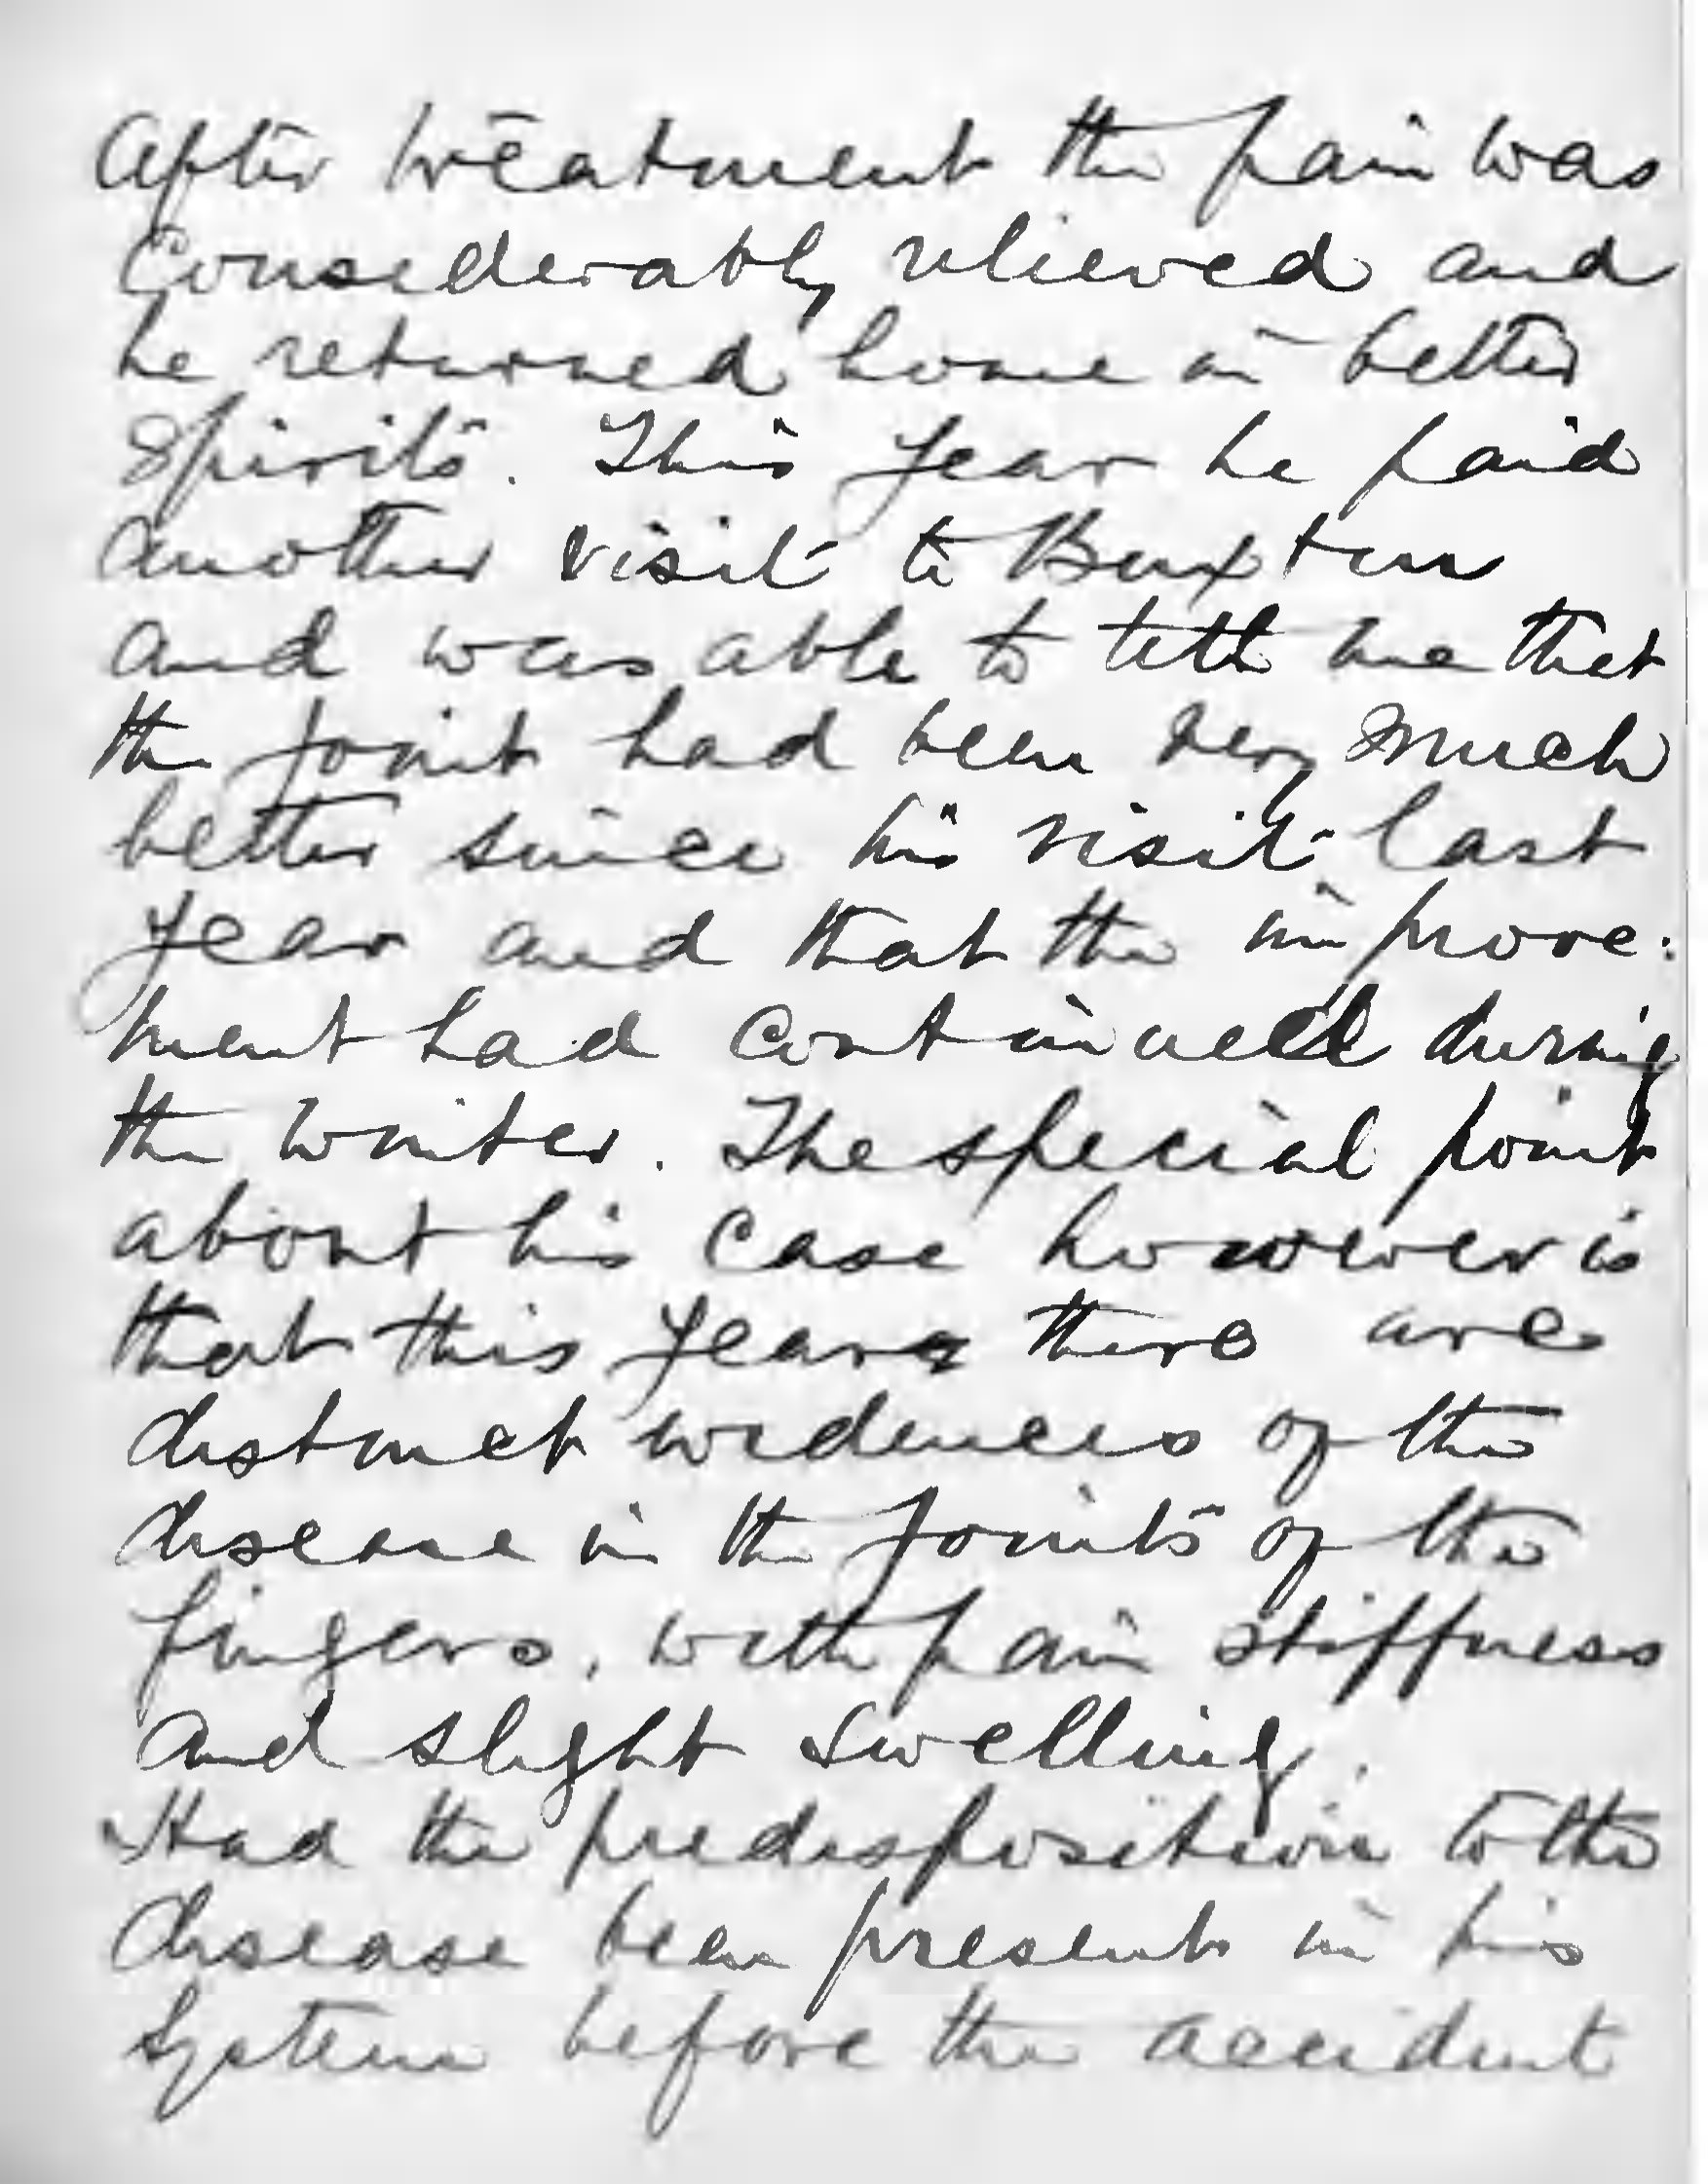 After treatment the pain was
Considerably relieved and
he returned home in better
Spirits. This year he paid
another visit to Buxton
and was able to tell me that
the joint had been very much
better since his visit last
year and that the improve:
ment had continued during
the winter. The special point
about his case however is
that this year there are
distinct evidences of the
disease in the joints of the
fingers, with pain stiffness
and slight swelling.
Had the predisposition to the
disease been present in his
System before the accident